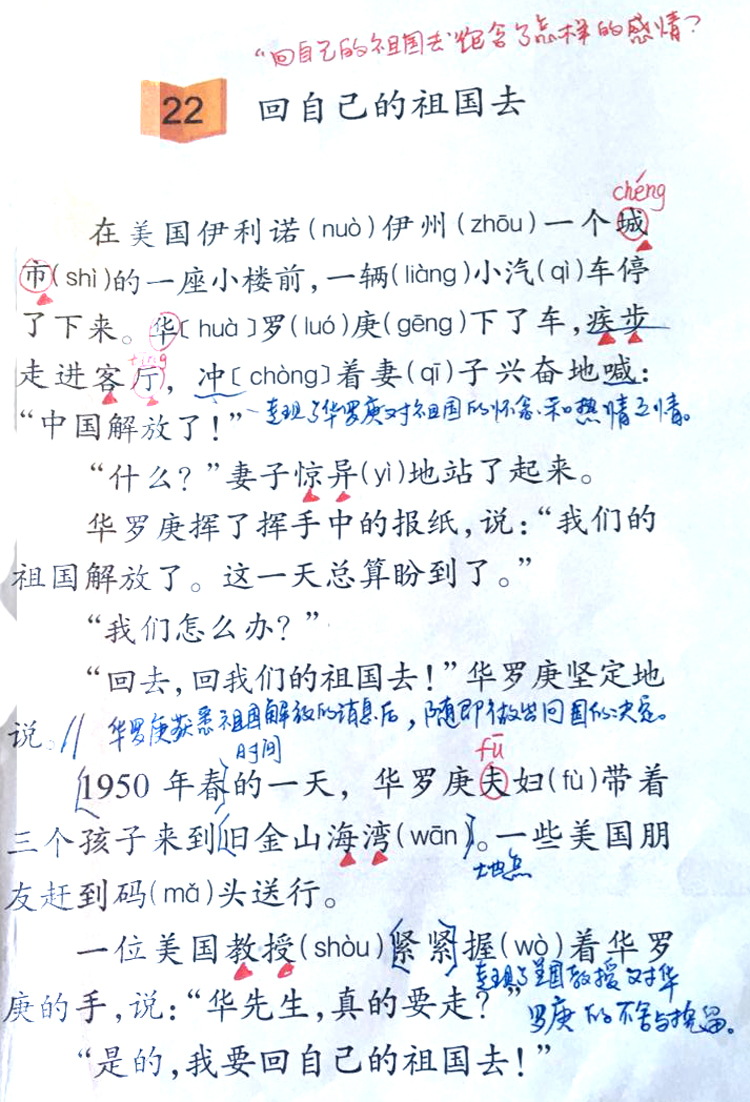 “回自己的祖国去”包含了怎样的感情？
22 回自己的祖国去
chéng
在美国伊利诺(nuò)伊州(zhōu)一个城
市(shì)的一座小楼前,一辆(liàng)小汽(qì)车停
了下来。华〔huà〕罗(luó)庚(gēng)下了车,疾步
tīng
走进客厅，冲〔chòng〕着妻(qī)子兴奋地喊:
“中国解放了！”
表现了华罗庚对祖国的怀念和热情之情。
“什么？”妻子惊异(yì)地站了起来。
华罗庚挥了挥手中的报纸,说:“我们的
祖国解放了。这一天总算盼到了。”
“我们怎么办？”
“回去,回我们的祖国去！”华罗庚坚定地
说。
华罗庚获悉祖国解放的消息后，随即做出回国的决定。
时间
fū
1950年春的一天，华罗庚夫妇(fù)带着
三个孩子来到旧金山海湾(wān)。一些美国朋
地点
友赶到码(mǎ)头送行。
一位美国教授(shòu)紧紧握(wò)着华罗
庚的手,说:“华先生,真的要走？”
表现了美国教授对华
罗庚的不舍与挽留。
“是的,我要回自己的祖国去！”